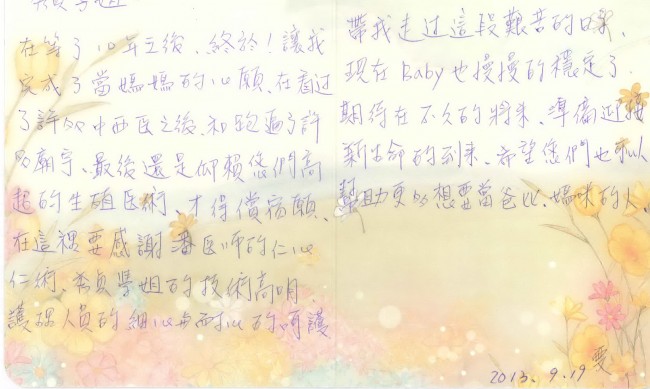 在等了10年之後、終於！讓我
完成了當媽媽的心願、在看過
了許多中西医之後、和跑遍了許
多廟宇、最後還是仰賴您們高
超的生殖医術、才得償宿願、
在這裡要感謝潘医师的仁心
仁術、秀貞學姐的技術高明、
護理人員的細心与耐心的呵護
帶我走过這段艱苦的日子、
現在Baby也慢慢的穩定了、
期待在不久的將來、準備迎接
新生命的到來、希望您們也可以
幫助更多想要當爸比、媽咪的人、
雯
2013. 9. 19